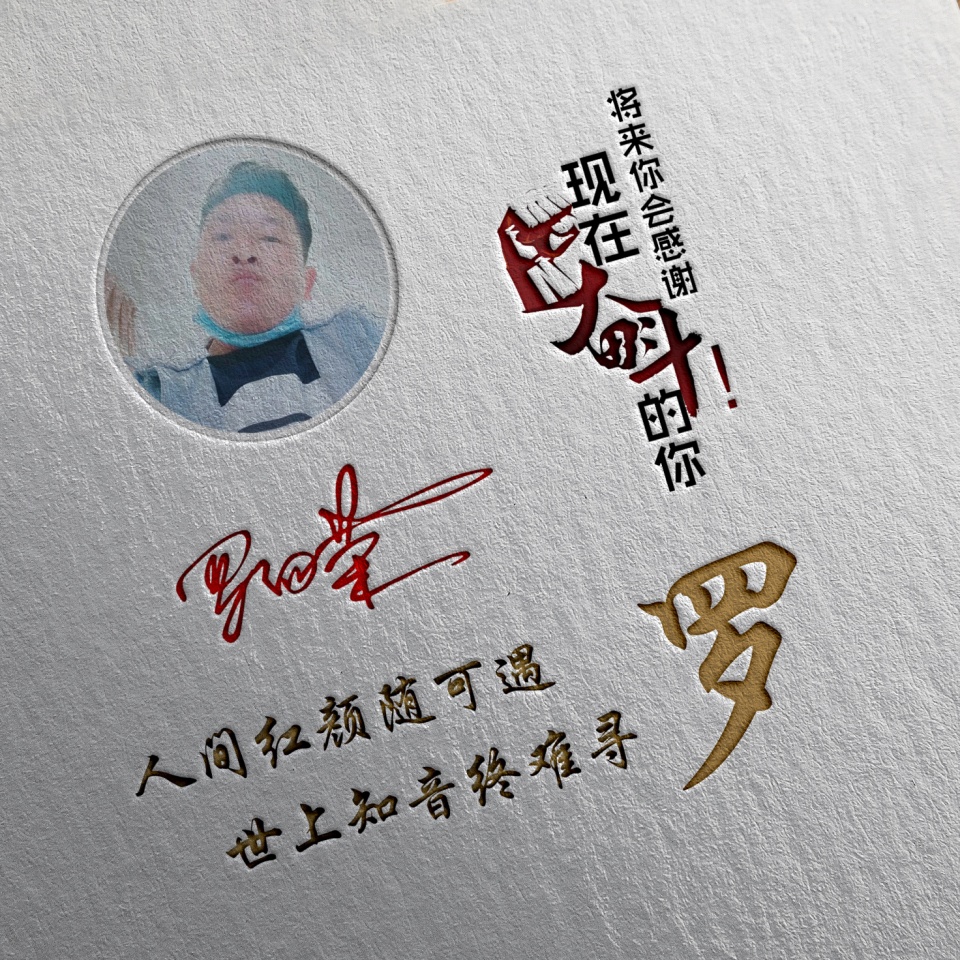 将来你会感谢
现在
奋斗!
的你
罗
人间红颜随可遇
世上知音终难寻